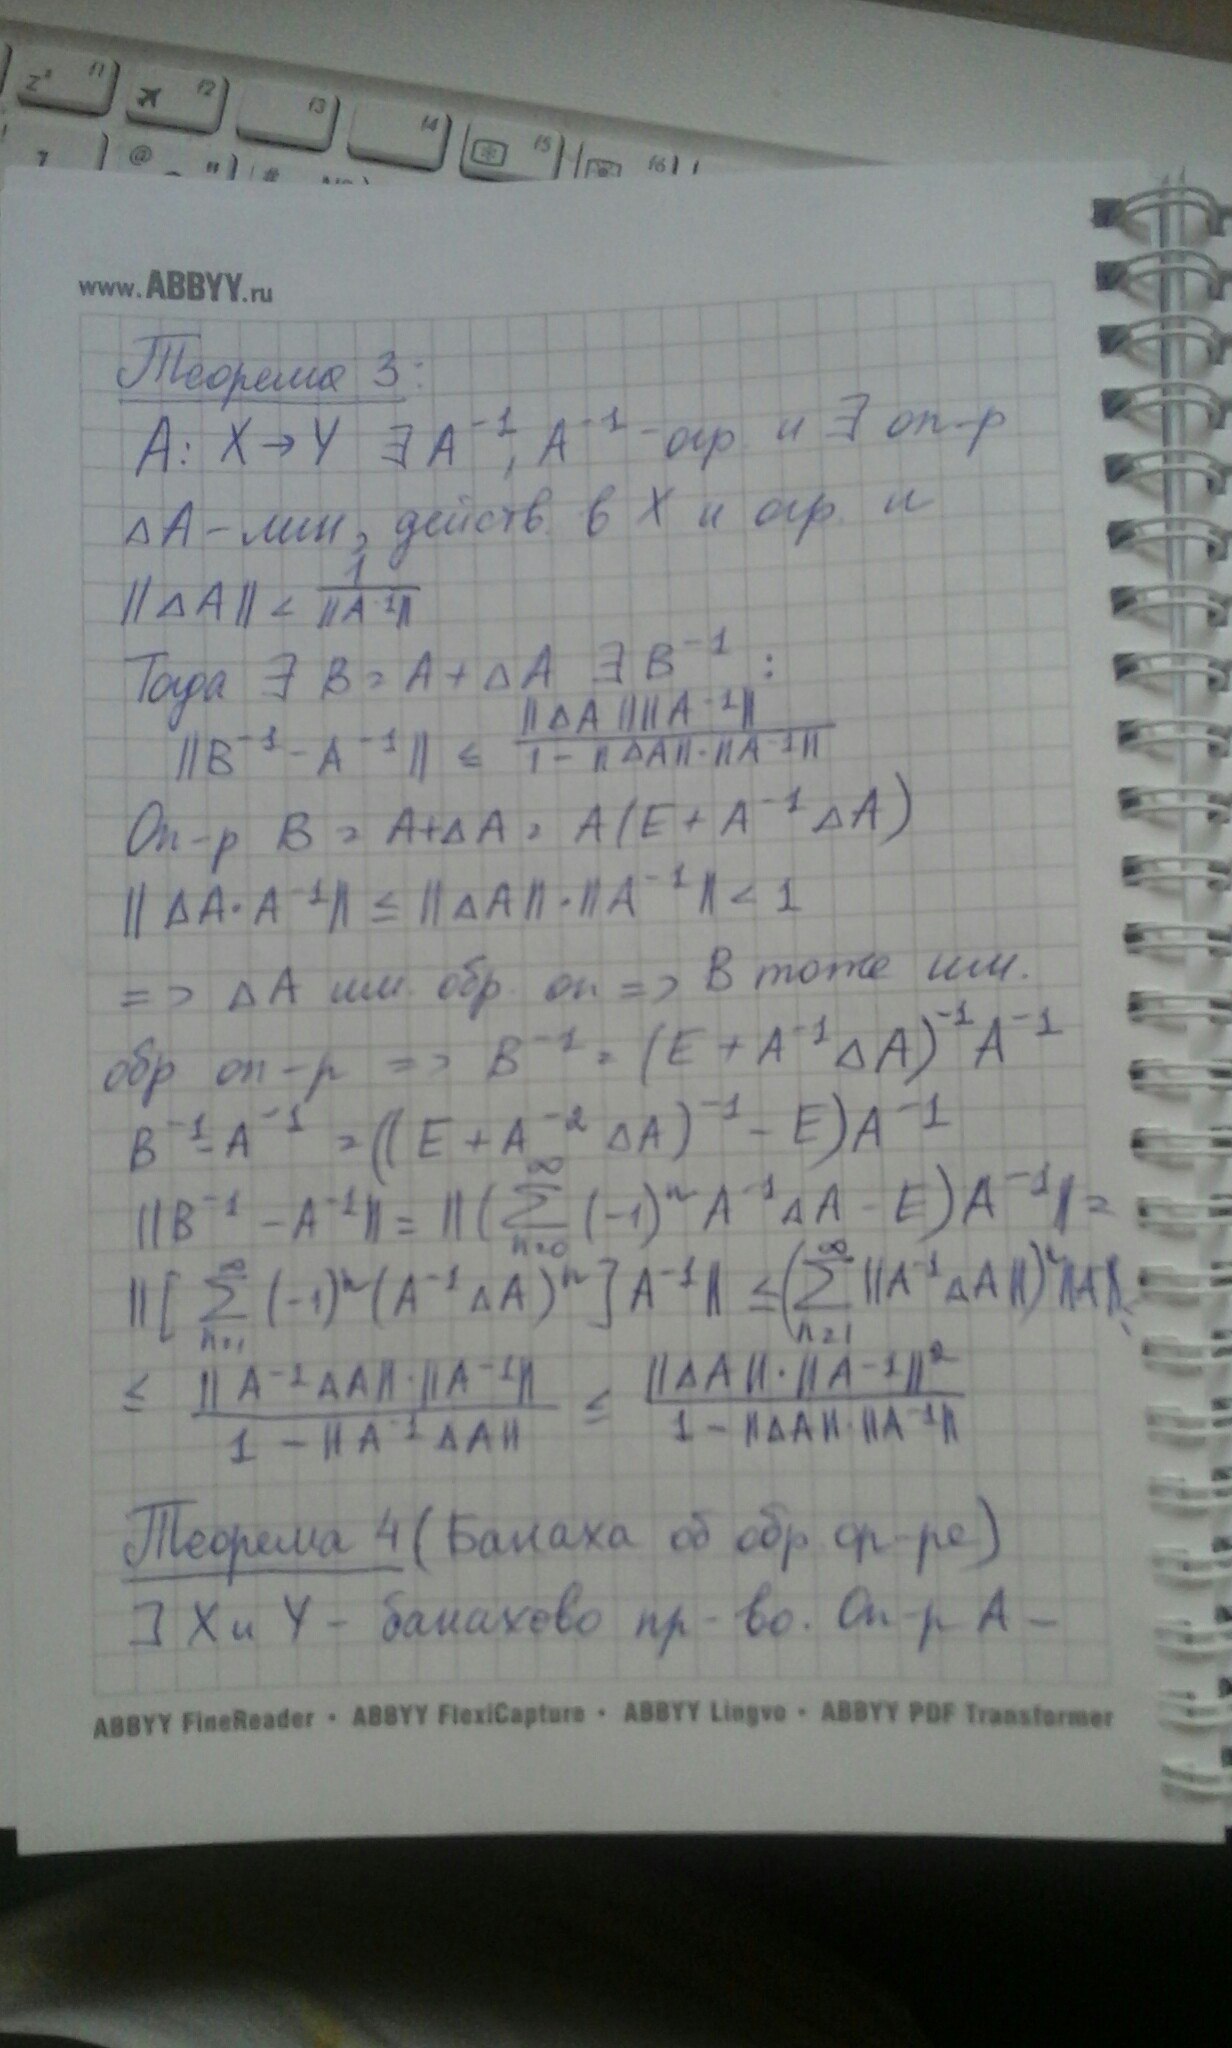 z² F1 F2 F3 F4 F5 F6
@ " #
www.ABBYY.ru
Теорема 3:
A: X → Y ∃ A⁻¹, A⁻¹ - огр и ∃ оп-р
ΔA - лин, действ. в X и огр. и
||ΔA|| < 1/||A⁻¹||
Тогда ∃ B = A + ΔA ∃ B⁻¹ :
||B⁻¹ - A⁻¹|| ≤ ||ΔA|| ||A⁻¹|| / (1 - ||ΔA||·||A⁻¹||)
Оп-р B = A+ΔA = A(E + A⁻¹ΔA)
||ΔA·A⁻¹|| ≤ ||ΔA||·||A⁻¹|| < 1
=> ΔA им. обр. оп => B тоже им.
обр оп-р => B⁻¹ = (E + A⁻¹ΔA)⁻¹A⁻¹
B⁻¹-A⁻¹ = ((E + A⁻²ΔA)⁻¹ - E)A⁻¹
||B⁻¹ - A⁻¹|| = ||(∑ₙ₌₀^∞ (-1)ⁿ A⁻¹ΔA - E)A⁻¹|| =
||[∑ₙ₌₁^∞ (-1)ⁿ(A⁻¹ΔA)ⁿ]A⁻¹|| ≤ (∑ₙ₌₁^∞ ||A⁻¹ΔA||)ⁿ||A||
≤ ||A⁻¹ΔA||·||A⁻¹|| / (1 - ||A⁻¹ΔA||) ≤ ||ΔA||·||A⁻¹||² / (1 - ||ΔA||·||A⁻¹||)
Теорема 4 (Банаха об обр ор-ре)
∃ X и Y - банахово пр-во. Оп-р A -
ABBYY FineReader • ABBYY FlexiCapture • ABBYY Lingvo • ABBYY PDF Transformer